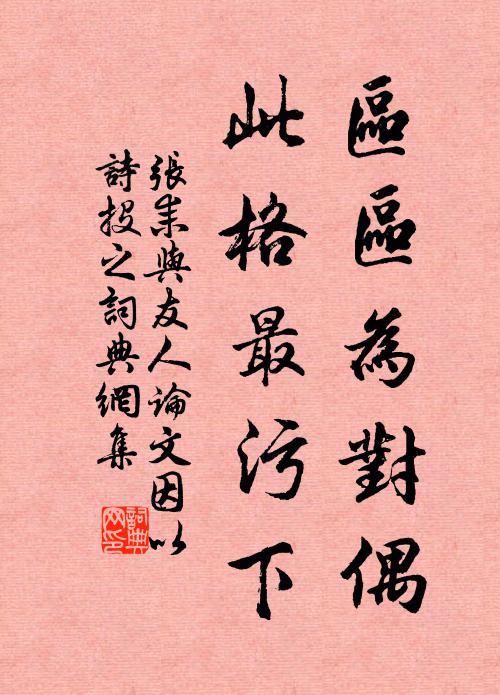 區區為對偶
此格最污下
張耒與友人論文因以
詩投之詞典網集
詞典網印